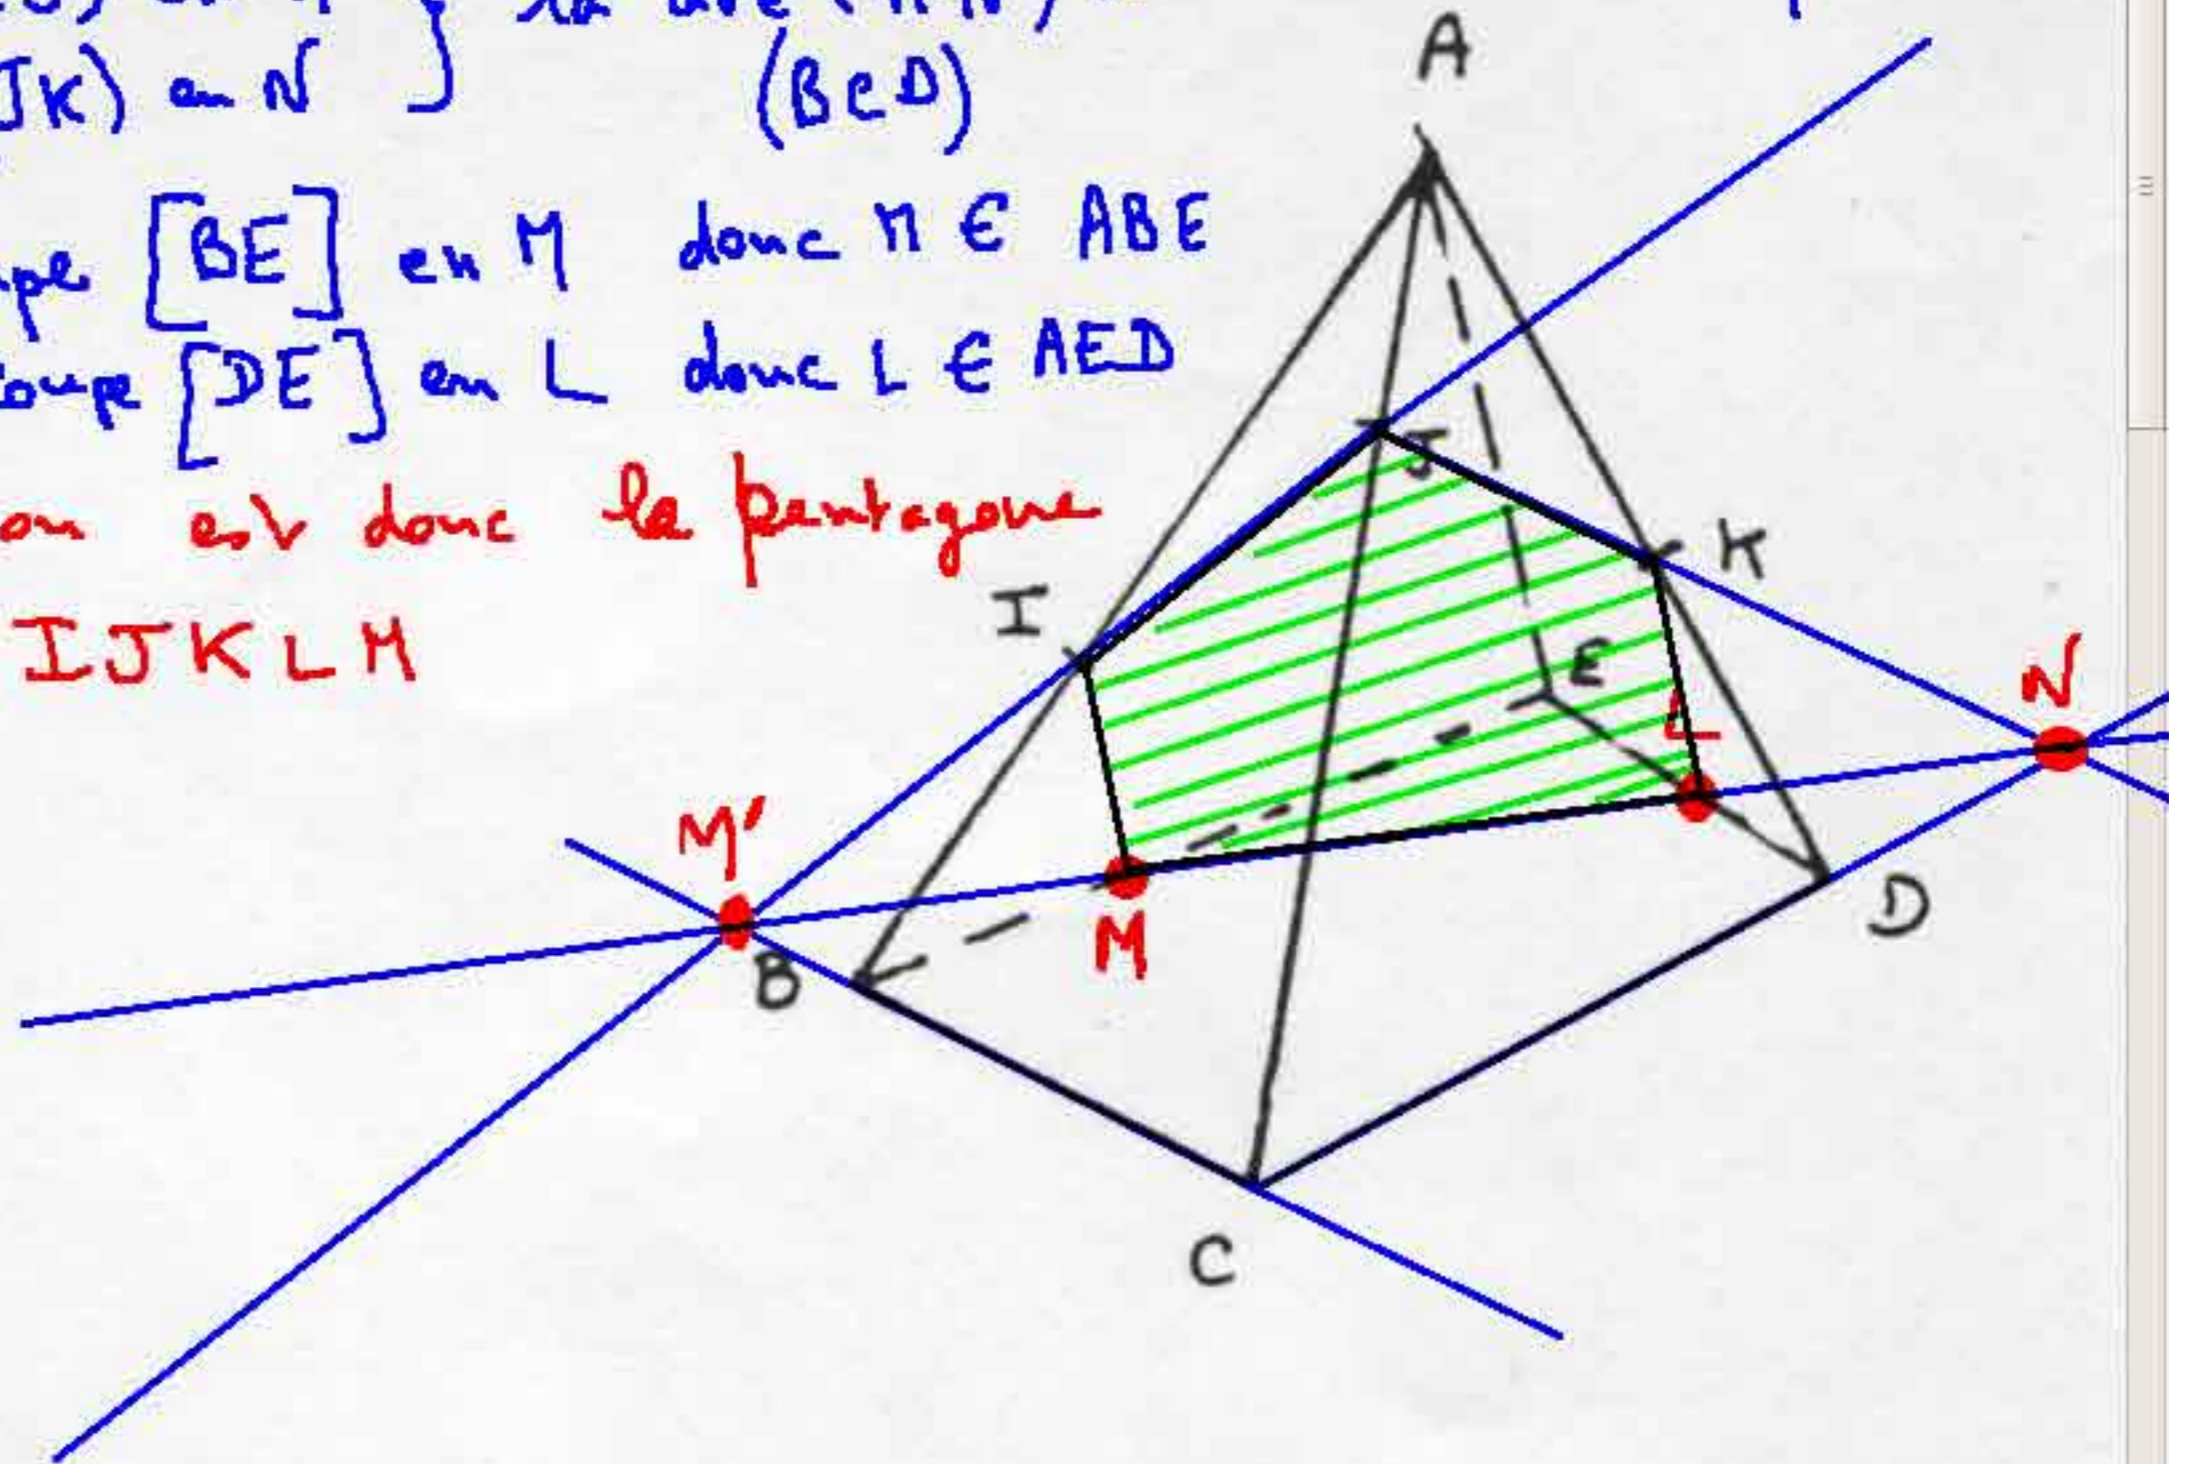 en N
(BCD)
[BE] en M donc M ∈ ABE
coupe [DE] en L donc L ∈ AED
est donc le pentagone
IJKLM
A
J
K
I
E
L
N
M'
B
M
D
C